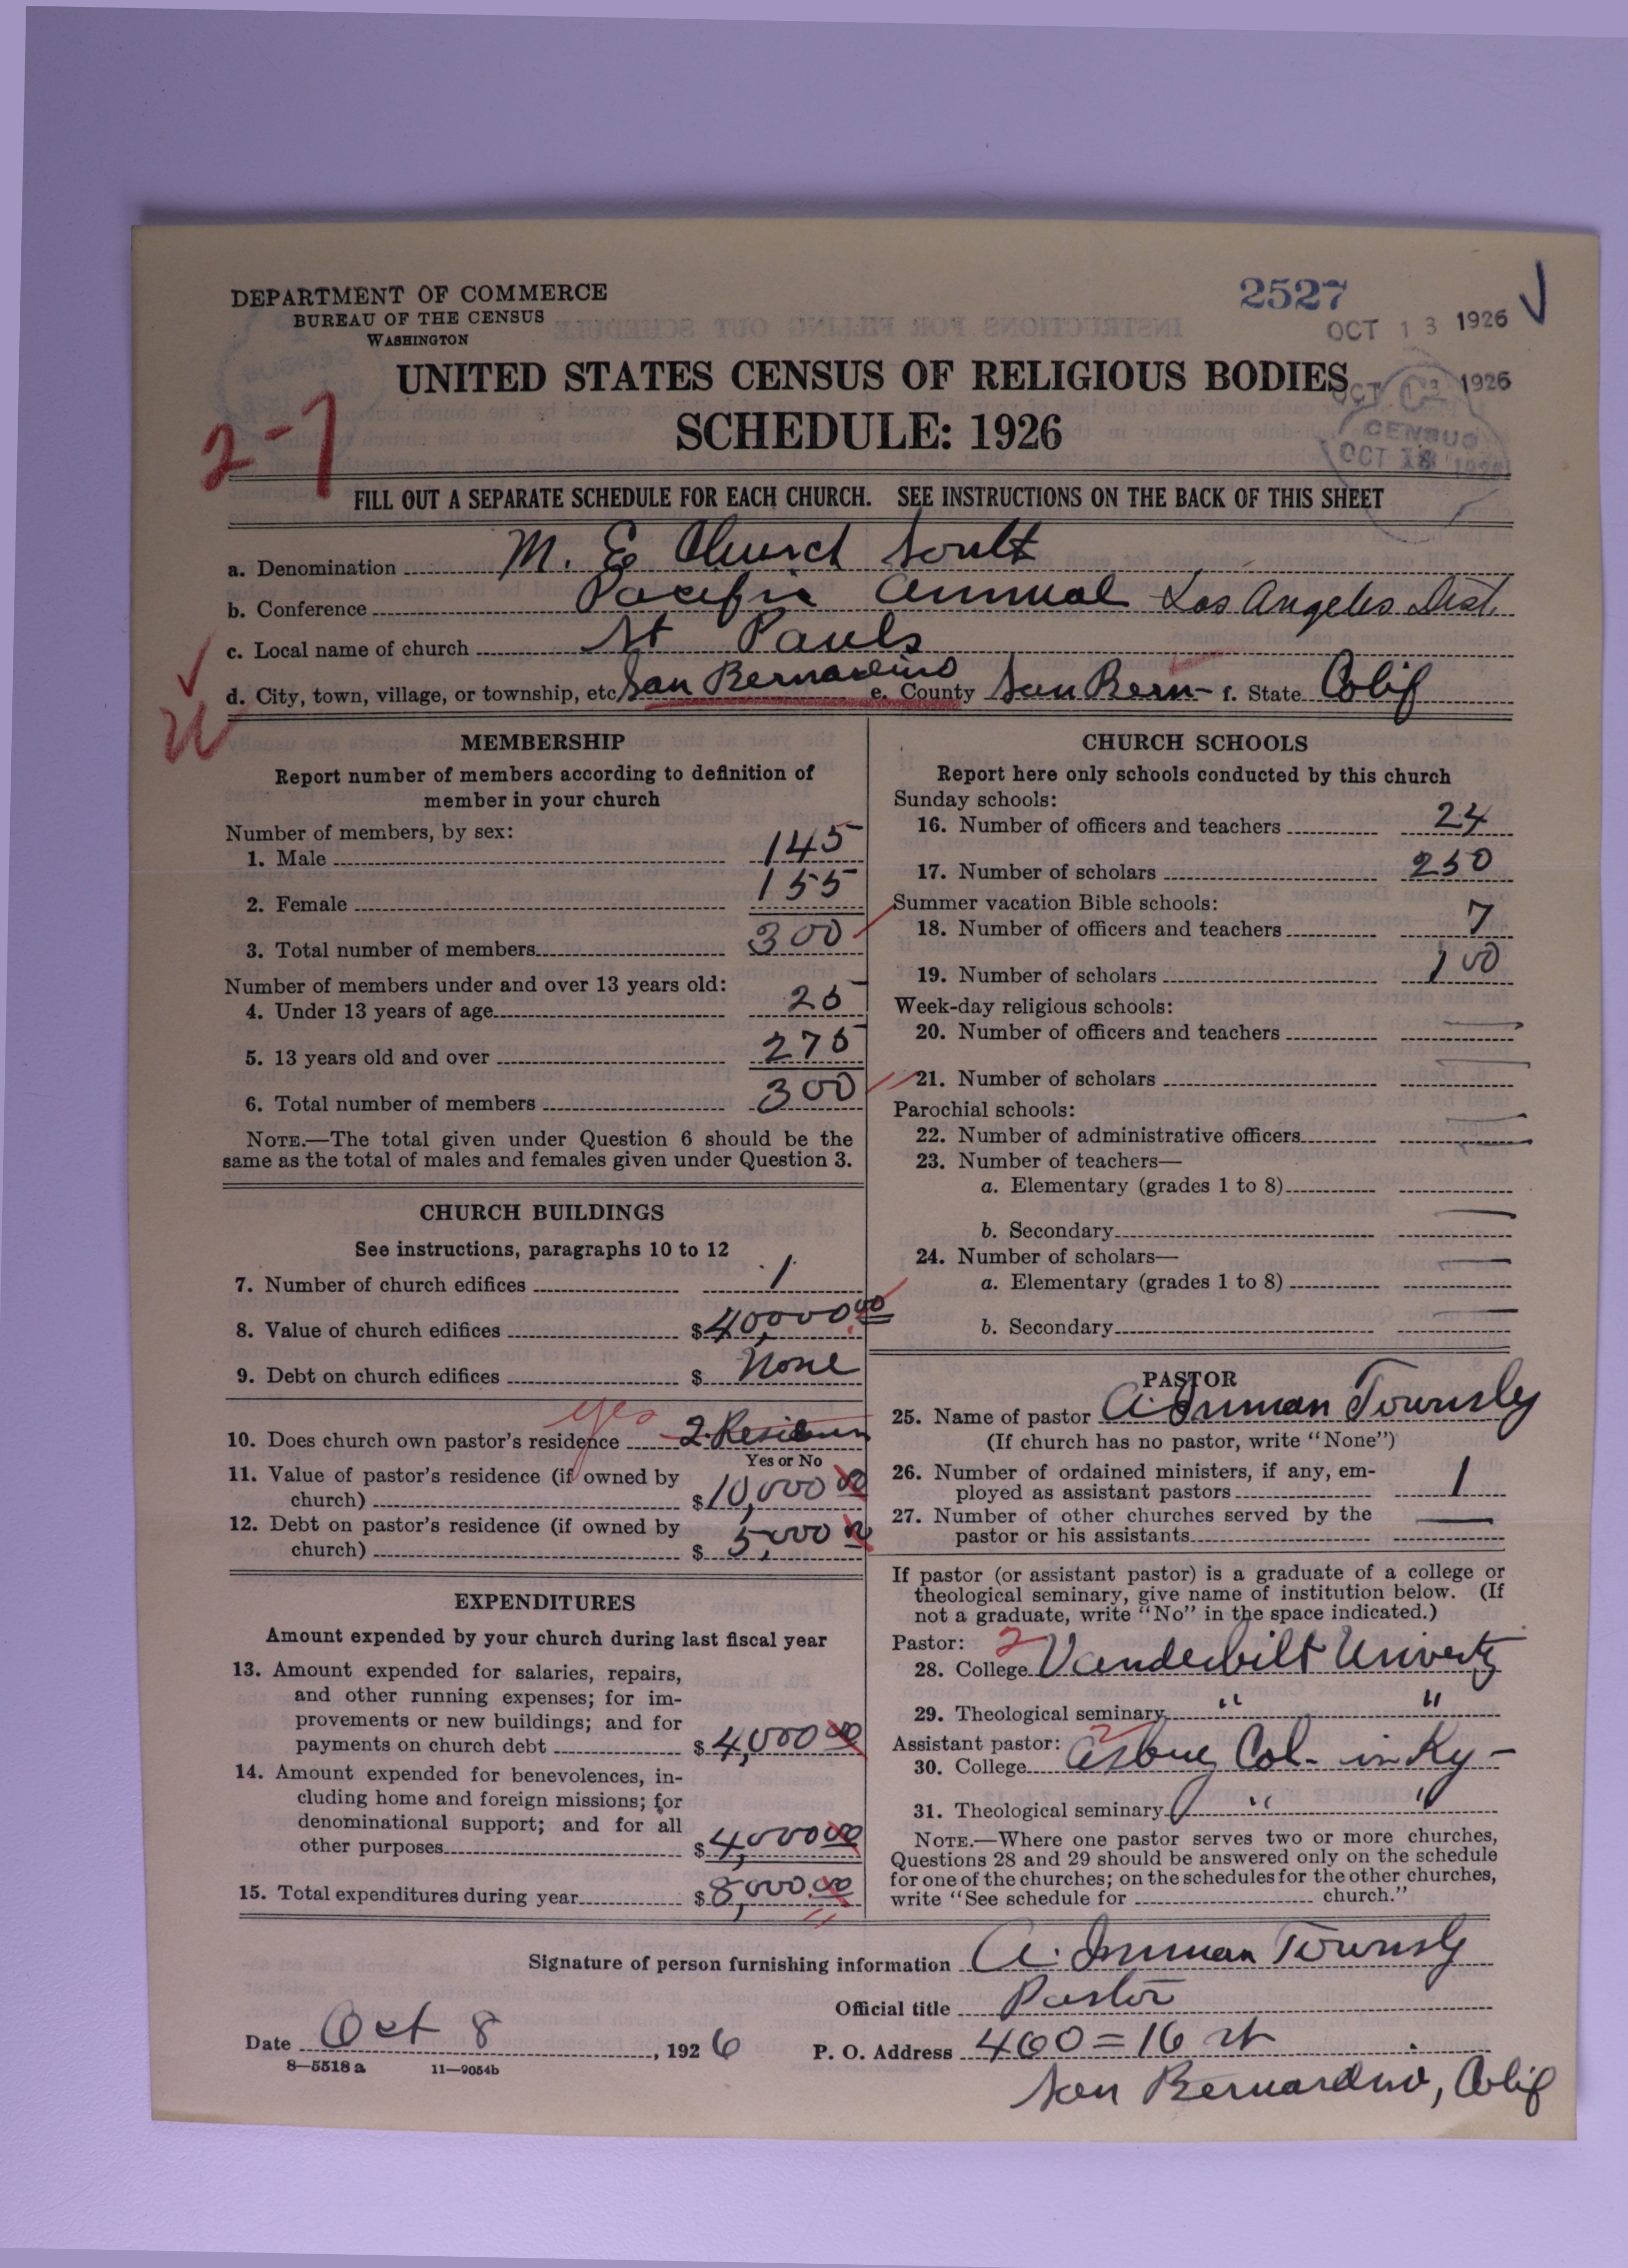 DEPARTMENT OF COMMERCE
BUREAU OF THE CENSUS
WASHINGTON
2527
OCT 13 1926
UNITED STATES CENSUS OF RELIGIOUS BODIES
1926
SCHEDULE: 1926
CENSUS
OCT
2-7
FILL OUT A SEPARATE SCHEDULE FOR EACH CHURCH. SEE INSTRUCTIONS ON THE BACK OF THIS SHEET
a. Denomination M. E Church South
b. Conference Pacific Annual Los Angeles Dist.
c. Local name of church St Pauls
d. City, town, village, or township, etc San Bernardino e. County San Bern- f. State Calif
MEMBERSHIP
Report number of members according to definition of
member in your church
Number of members, by sex:
1. Male 145
2. Female 155
3. Total number of members 300
Number of members under and over 13 years old:
4. Under 13 years of age 25
5. 13 years old and over 275
6. Total number of members 300
NOTE.—The total given under Question 6 should be the
same as the total of males and females given under Question 3.
CHURCH BUILDINGS
See instructions, paragraphs 10 to 12
7. Number of church edifices 1
8. Value of church edifices $40,000.00
9. Debt on church edifices $ None
yes
10. Does church own pastor's residence 2.
Yes or No
11. Value of pastor's residence (if owned by
church) $10,000 00
12. Debt on pastor's residence (if owned by
church) $ 5,000 00
EXPENDITURES
Amount expended by your church during last fiscal year
13. Amount expended for salaries, repairs,
and other running expenses; for im-
provements or new buildings; and for
payments on church debt $4,000 00
14. Amount expended for benevolences, in-
cluding home and foreign missions; for
denominational support; and for all
other purposes $4,000 00
15. Total expenditures during year $8,000.00
CHURCH SCHOOLS
Report here only schools conducted by this church
Sunday schools:
16. Number of officers and teachers 24
17. Number of scholars 250
Summer vacation Bible schools:
18. Number of officers and teachers 7
19. Number of scholars 100
Week-day religious schools:
20. Number of officers and teachers —
21. Number of scholars —
Parochial schools:
22. Number of administrative officers —
23. Number of teachers—
a. Elementary (grades 1 to 8)
b. Secondary —
24. Number of scholars—
a. Elementary (grades 1 to 8) —
b. Secondary —
PASTOR
25. Name of pastor A. Inman Townsly
(If church has no pastor, write "None")
26. Number of ordained ministers, if any, em-
ployed as assistant pastors 1
27. Number of other churches served by the
pastor or his assistants —
If pastor (or assistant pastor) is a graduate of a college or
theological seminary, give name of institution below. (If
not a graduate, write "No" in the space indicated.)
Pastor: 2
28. College Vanderbilt Univerty
29. Theological seminary " "
Assistant pastor: 2
30. College Asbury Col- in Ky -
31. Theological seminary " "
NOTE.—Where one pastor serves two or more churches,
Questions 28 and 29 should be answered only on the schedule
for one of the churches; on the schedules for the other churches,
write "See schedule for church."
Signature of person furnishing information A. Inman Townsly
Official title Pastor
Date Oct 8, 1926 P. O. Address 460=16 st
8—5518a 11—9054b
San Bernardino, Calif